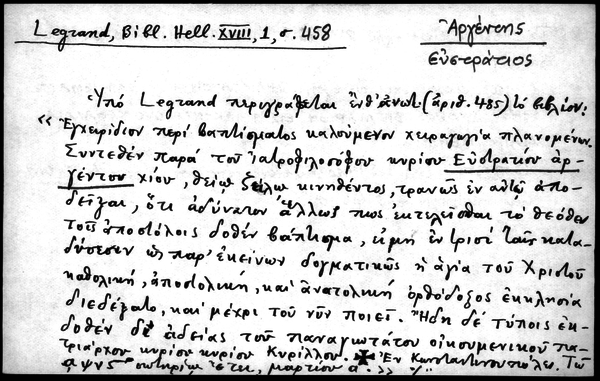 Legrand, Bibl. Hell. XVIII, 1, σ. 458
Ἀργέντης
Εὐστράτιος
Ὑπό Legrand περιγράφεται ἐνθ' ἀνωτ. (ἀριθ. 485) τό βιβλίον:
« Ἐγχειρίδιον περί βαπτίσματος καλούμενον χειραγωγία πλανομένων.
Συντεθέν παρά τοῦ ἰατροφιλοσόφου κυρίου Εὐστρατίου ἀρ-
γέντου χίου, θείῳ ζήλῳ κινηθέντος, τρανῶς ἐν αὐτῷ ἀπο-
δεῖξαι, ὅτι ἀδύνατον ἄλλως πως ἐκτελεῖσθαι τό θεόθεν
τοῖς ἀποστόλοις δοθέν βάπτισμα, εἰμή ἐν τρισί ταῖς κατα-
δύσεσιν ὡς παρ' ἐκείνων δογματικῶς ἡ ἁγία τοῦ Χριστοῦ
καθολική, ἀποστολική, καί ἀνατολική ὀρθόδοξος ἐκκλησία
διεδέξατο, καί μέχρι τοῦ νῦν ποιεῖ. Ἤδη δέ τύποις ἐκ-
δοθέν δι' ἀδείας τοῦ παναγιωτάτου οἰκουμενικοῦ πα-
τριάρχου κυρίου κυρίου Κυρίλλου. ✠ Ἐν Κωνσταντινουπόλει. Τῷ
αψνς σωτηρίῳ ἔτει, μαρτίου α. »